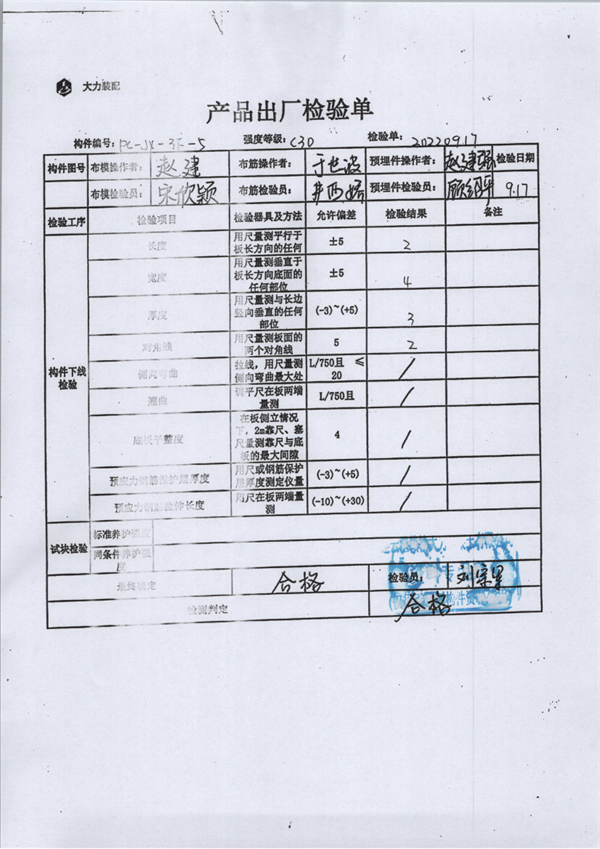 大力装配
产品出厂检验单
构件编号: PC-JX-3F-5 强度等级: C30 检验单: 20220917
构件图号 布模操作者: 赵建 布筋操作者: 于世波 预埋件操作者: 赵建强 检验日期
布模检验员: 宋欣颖 布筋检验员: 预埋件检验员: 9.17
检验工序 检验项目 检验器具及方法 允许偏差 检验结果 备注
构件下线检验
长度 用尺量测平行于板长方向的任何 ±5 2
宽度 用尺量测垂直于板长方向底面的任何部位 ±5 4
厚度 用尺量测与长边竖向垂直的任何部位 (-3)~(+5) 3
对角线 用尺量测板面的两个对角线 5 2
侧向弯曲 拉线,用尺量测侧向弯曲最大处 L/750且 ≤20 /
翘曲 调平尺在板两端量测 L/750且 /
底板平整度 在板侧立情况下,2m靠尺、塞尺量测靠尺与底板的最大间隙 4 /
预应力钢筋保护层厚度 用尺或钢筋保护层厚度测定仪量 (-3)~(+5) /
预应力钢筋拉伸长度 用尺在板两端量测 (-10)~(+30) /
试块检验 标准养护强度
同条件养护强度
最终确定 合格 检验员: 刘宗星
检测判定 合格